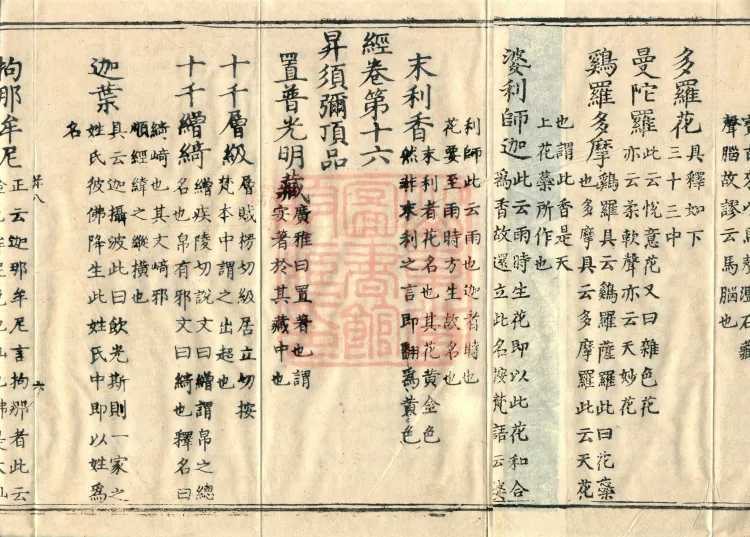 聲腦故謬云馬腦也
多羅花具釋如下
三十三中
曼陀羅此云悅意花又曰雜色花
亦云柔軟聲亦云天妙花
鷄羅多摩鷄羅具云鷄羅薩羅此曰花蘂
也多摩羅具云多摩羅此云天花
也謂此香是天
上花藁所作也
婆利師迦此云雨時生花即以此花和合
為香故還立此名按梵語云婆
利師此云雨也迦者時也
花要至雨時方生故名也
末利香末利者花名也其花黃金色
然非末利之言即翻為黃色
經卷第十六
昇須彌頂品
置普光明藏廣雅曰置著也謂
安著於其藏中也
十千層級層賊楞切級居立切按
梵本中謂之出超也
十千繒綺繒疾陵切說文曰繒謂帛之總
名也帛有邪文曰綺也釋名曰
綺崎也其文崎邪
順經緯之縱橫也
迦葉具云迦攝波此曰飲光斯則一家之
姓氏彼佛降生此姓氏中即以姓為
名
六
拘那牟尼正云迦那牟尼言拘那者此云